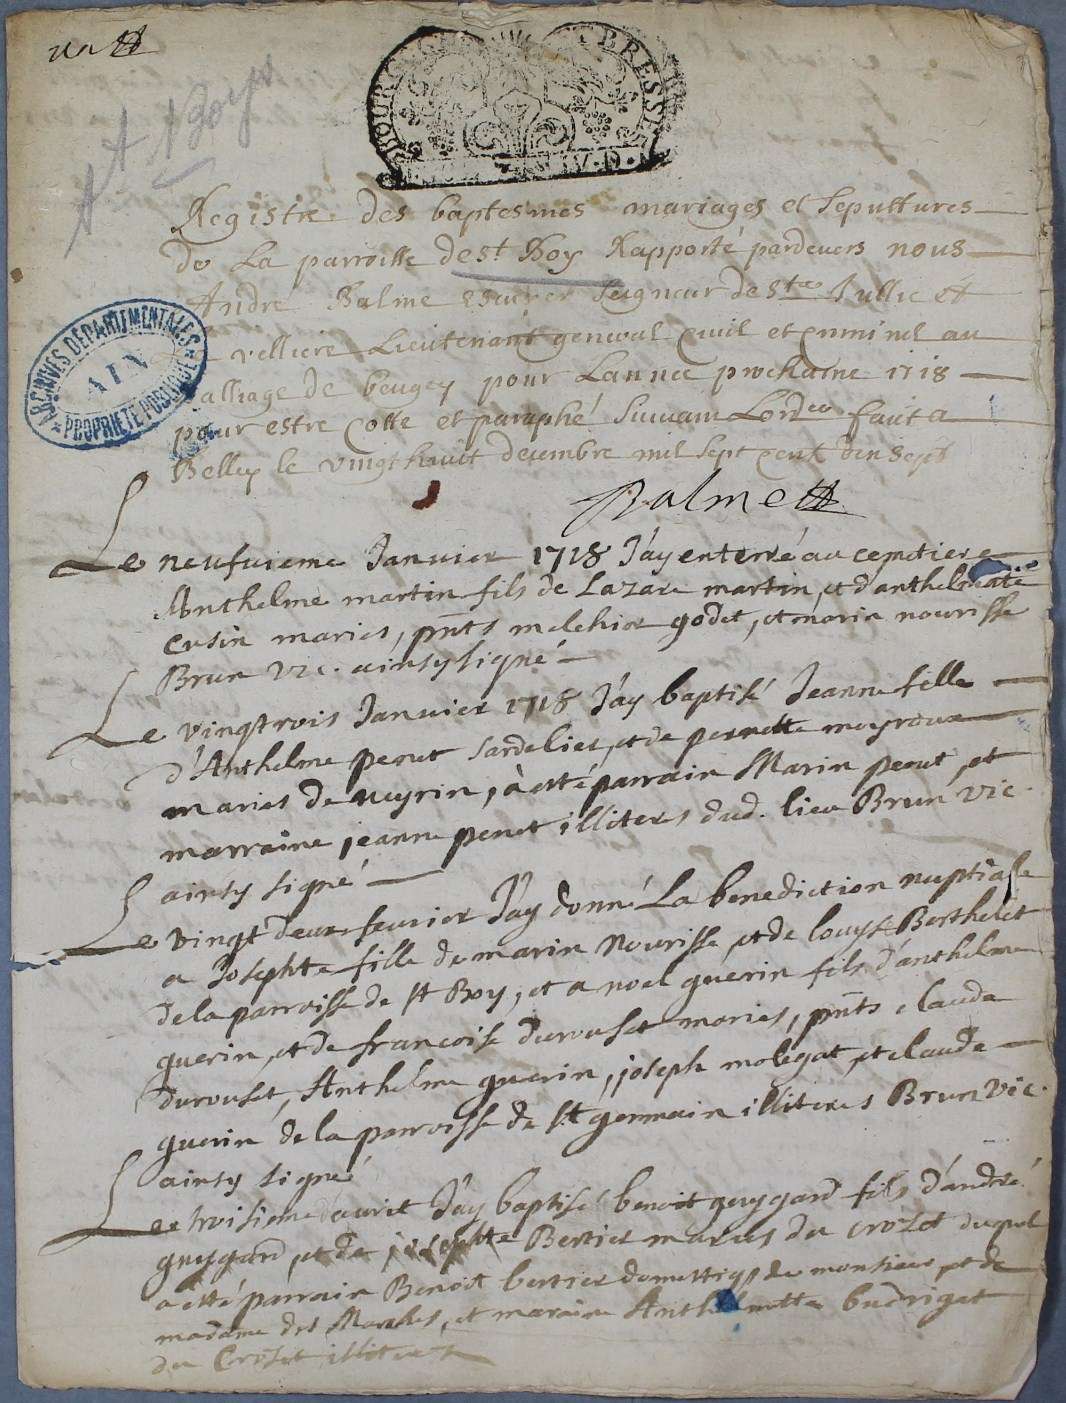 BOURG BRESSE
St Boys
Registre des baptesmes mariages et sepultures
de La parroisse de St Boy Rapporté pardevers nous
André Balme escuyer seigneur de Ste Jullie et
velliere Lieutenant general civil et criminel au
Balliage de beugey pour Lannée prochaine 1718
pour estre Cotté et paraphé suivant Lordce fait a
Belley le vingthuit decembre mil sept cent dix sept
Balme
ARCHIVES DÉPARTEMENTALES
AIN
PROPRIÉTÉ PUBLIQUE
Le neufvieme Janvier 1718 J'ay enterré au cemetiere
Anthelme martin fils de Lazare martin, et d'anthelmete
cusin maries, pnts melchior godet, et marin nourisse
Brun vic. ainsy signé
Le vingtrois Janvier 1718 J'ay baptisé Jeanne fille
d'Anthelme penet sardelier, et de pernette moyroux
maries de neyrin, à esté parrain Marin penet, et
marraine jeanne penet illiteres dud. lieu Brun vic.
ainsy signé
Le vingt deux fevrier J'ay donné La benediction nuptialle
a Josephte fille de marin Nourisse, et de louyse Berthelet
de la parroisse de st Boy, et a noel guerin fils d'anthelme
guerin, et de francoise durouset maries, pnts claude
durouset, Anthelme guerin, joseph molegat, et claude
guerin de la parroisse de st germain illiteres Brun vic.
ainsy signé
Le troisieme avril J'ay baptisé benoit guygard fils d'andré
guygard, et de josephte Bertier maries du crozet duquel
a esté parrain Benoit bertier domestique de monsieur, et de
madame des Marches, et maraine Anthelmette budrigat
du Crozet illiteres